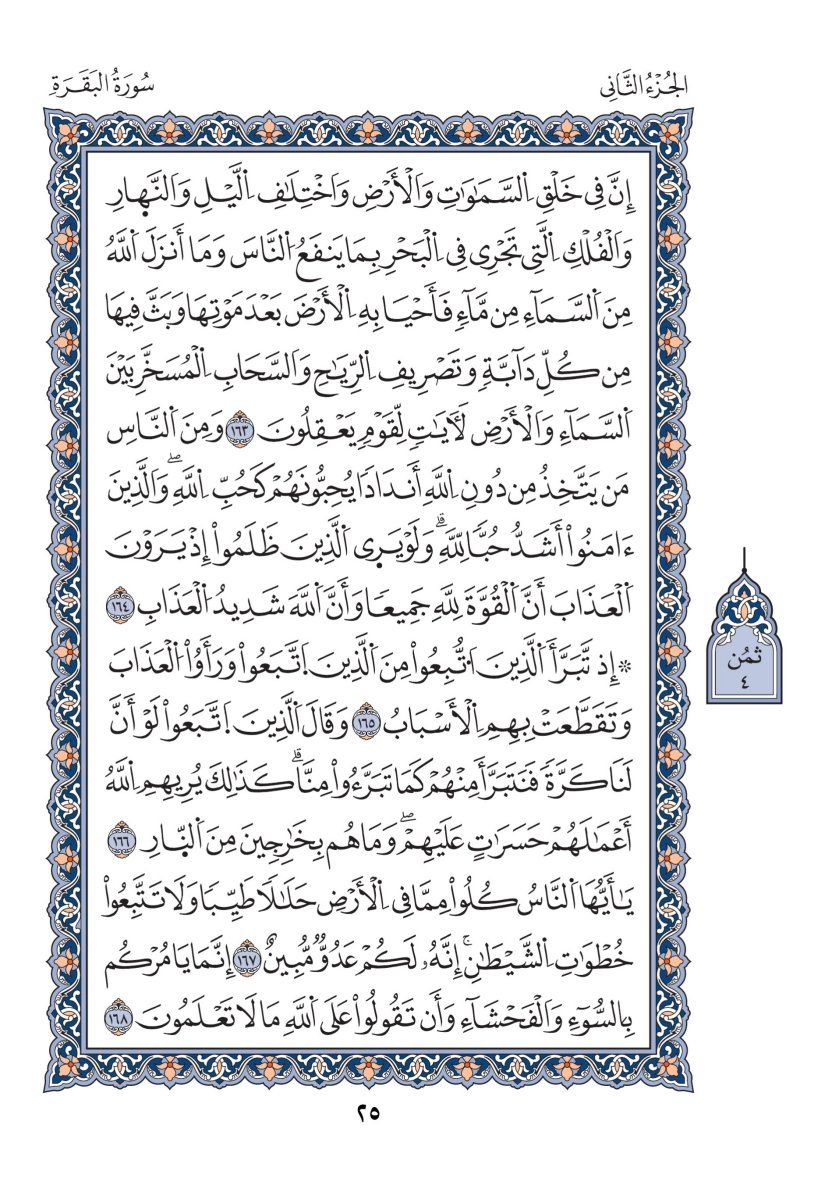 الجُزْءُ الثَّانِي
سُورَةُ البَقَرَةِ
إِنَّ فِي خَلْقِ اِ۬لسَّمَٰوَٰتِ وَالْأَرْضِ وَاخْتِلَٰفِ اِ۬لَّيْلِ وَالنَّه۪ارِ
وَالْفُلْكِ اِ۬لَّتِي تَجْرِي فِي اِ۬لْبَحْرِ بِمَا يَنفَعُ اُ۬لنَّاسَ وَمَا أَنزَلَ اَ۬للَّهُ
مِنَ اَ۬لسَّمَآءِ مِن مَّآءٖ فَأَحْيَا بِهِ اِ۬لْأَرْضَ بَعْدَ مَوْتِهَا وَبَثَّ فِيهَا
مِن كُلِّ دَآبَّةٖ وَتَصْرِيفِ اِ۬لرِّيَٰحِ وَالسَّحَابِ اِ۬لْمُسَخَّرِ بَيْنَ
اَ۬لسَّمَآءِ وَالْأَرْضِ لَأٓيَٰتٖ لِّقَوْمٖ يَعْقِلُونَ ١٦٣ وَمِنَ اَ۬لنَّاسِ
مَن يَتَّخِذُ مِن دُونِ اِ۬للَّهِ أَندَادٗا يُحِبُّونَهُمْ كَحُبِّ اِ۬للَّهِۖ وَالَّذِينَ
ءَامَنُواْ أَشَدُّ حُبّٗا لِّلَّهِۗ وَلَوْ يَر۪ى اَ۬لَّذِينَ ظَلَمُواْ إِذْ يَرَوْنَ
اَ۬لْعَذَابَ أَنَّ اَ۬لْقُوَّةَ لِلَّهِ جَمِيعٗا وَأَنَّ اَ۬للَّهَ شَدِيدُ اُ۬لْعَذَابِ ١٦٤
۞ إِذ تَّبَرَّأَ اَ۬لَّذِينَ اَ۟تُّبِعُواْ مِنَ اَ۬لَّذِينَ اَ۪تَّبَعُواْ وَرَأَوُاْ اُ۬لْعَذَابَ
وَتَقَطَّعَتْ بِهِمِ اِ۬لْأَسْبَابُ ١٦٥ وَقَالَ اَ۬لَّذِينَ اَ۪تَّبَعُواْ لَوْ أَنَّ
لَنَا كَرَّةٗ فَنَتَبَرَّأَ مِنْهُمْ كَمَا تَبَرَّءُواْ مِنَّاۗ كَذَٰلِكَ يُرِيهِمِ اِ۬للَّهُ
أَعْمَٰلَهُمْ حَسَرَٰتٍ عَلَيْهِمْۖ وَمَا هُم بِخَٰرِجِينَ مِنَ اَ۬لنّ۪ارِ ١٦٦
يَٰأَيُّهَا اَ۬لنَّاسُ كُلُواْ مِمَّا فِي اِ۬لْأَرْضِ حَلَٰلٗا طَيِّبٗا وَلَا تَتَّبِعُواْ
خُطْوَٰتِ اِ۬لشَّيْطَٰنِۚ إِنَّهُۥ لَكُمْ عَدُوّٞ مُّبِينٌ ١٦٧ إِنَّمَا يَامُرْكُم
بِالسُّوٓءِ وَالْفَحْشَآءِ وَأَن تَقُولُواْ عَلَى اَ۬للَّهِ مَا لَا تَعْلَمُونَ ١٦٨
ثمُن
٤
٢٥